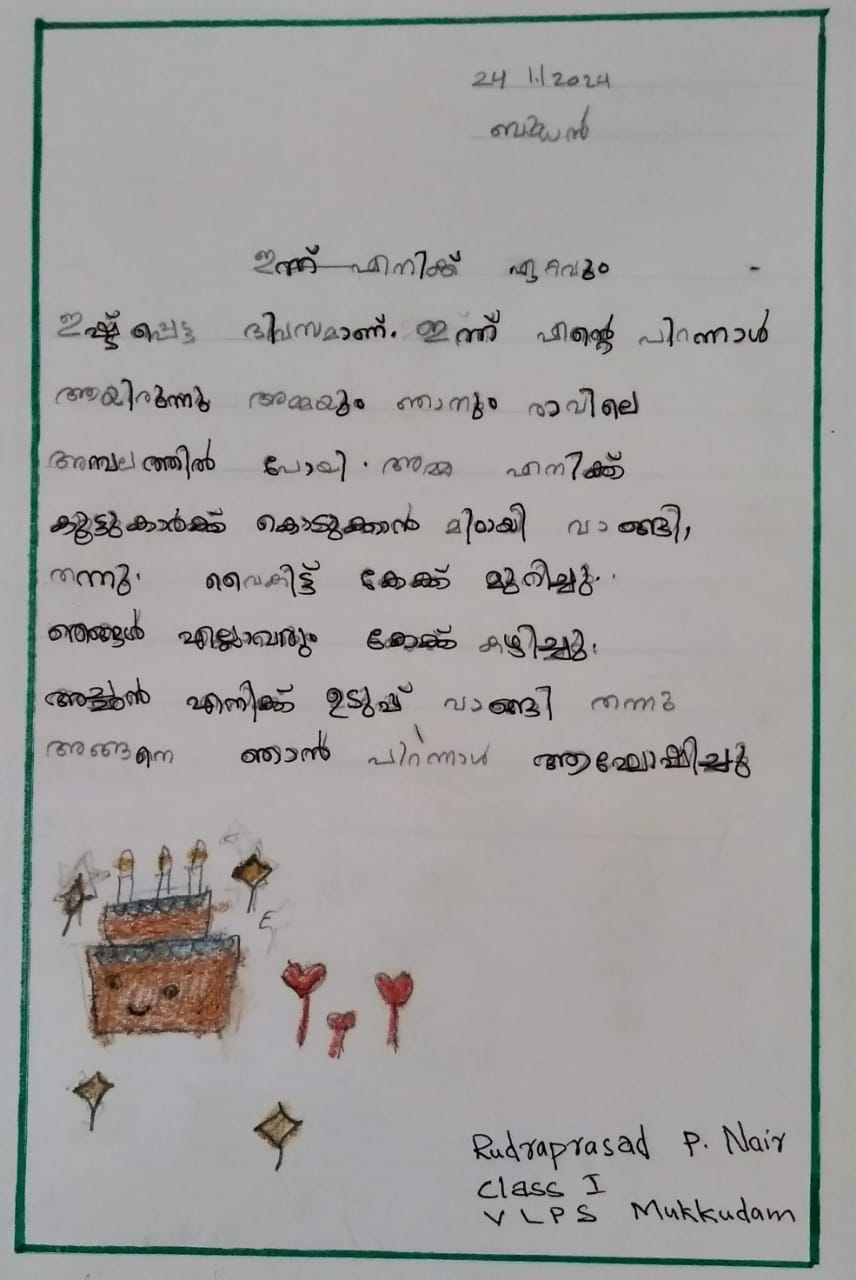 24 1.1/2024
ബുധൻ
ഇന്ന് എനിക്ക് ഏറ്റവും
ഇഷ്ട്ടപ്പെട്ട ദിവസമാണ്. ഇന്ന് എന്റെ പിറന്നാൾ
ആയിരുന്നു അമ്മയും ഞാനും രാവിലെ
അമ്പലത്തിൽ പോയി. അമ്മ എനിക്ക്
കൂട്ടുകാർക്ക് കൊടുക്കാൻ മിഠായി വാങ്ങി,
തന്നു. വൈകിട്ട് കേക്ക് മുറിച്ചു..
ഞങ്ങൾ എല്ലാവരും കേക്ക് കഴിച്ചു.
അച്ഛൻ എനിക്ക് ഉടുപ്പ് വാങ്ങി തന്നു
അങ്ങനെ ഞാൻ പിറന്നാൾ ആഘോഷിച്ചു
Rudraprasad P. Nair
Class I
VLPS Mukkudam